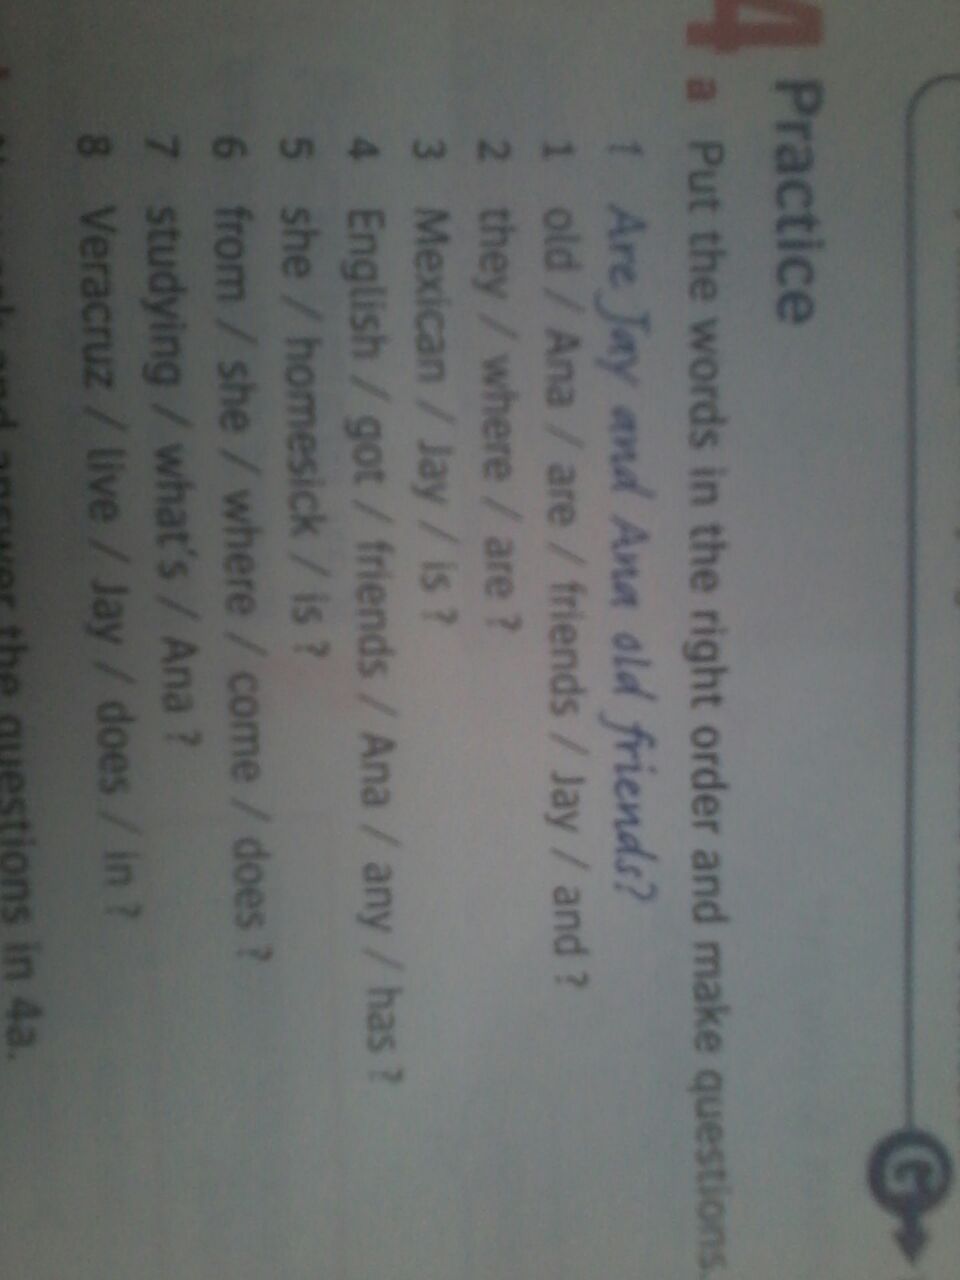 4 Practice
a Put the words in the right order and make questions.
1 Are Jay and Ana old friends?
1 old / Ana / are / friends / Jay / and ?
2 they / where / are ?
3 Mexican / Jay / is ?
4 English / got / friends / Ana / any / has ?
5 she / homesick / is ?
6 from / she / where / come / does ?
7 studying / what's / Ana ?
8 Veracruz / live / Jay / does / in ?
and answer the questions in 4a.